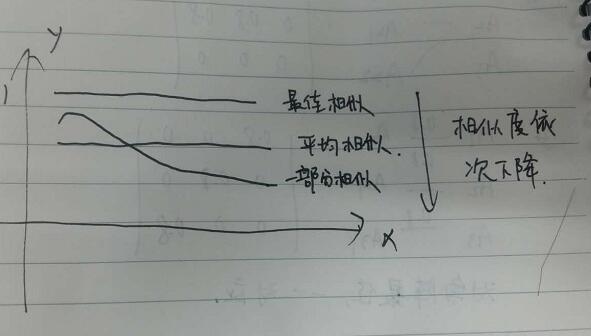 y
1
最佳相似
平均相似.
一部分相似
x
相似度依
次下降.